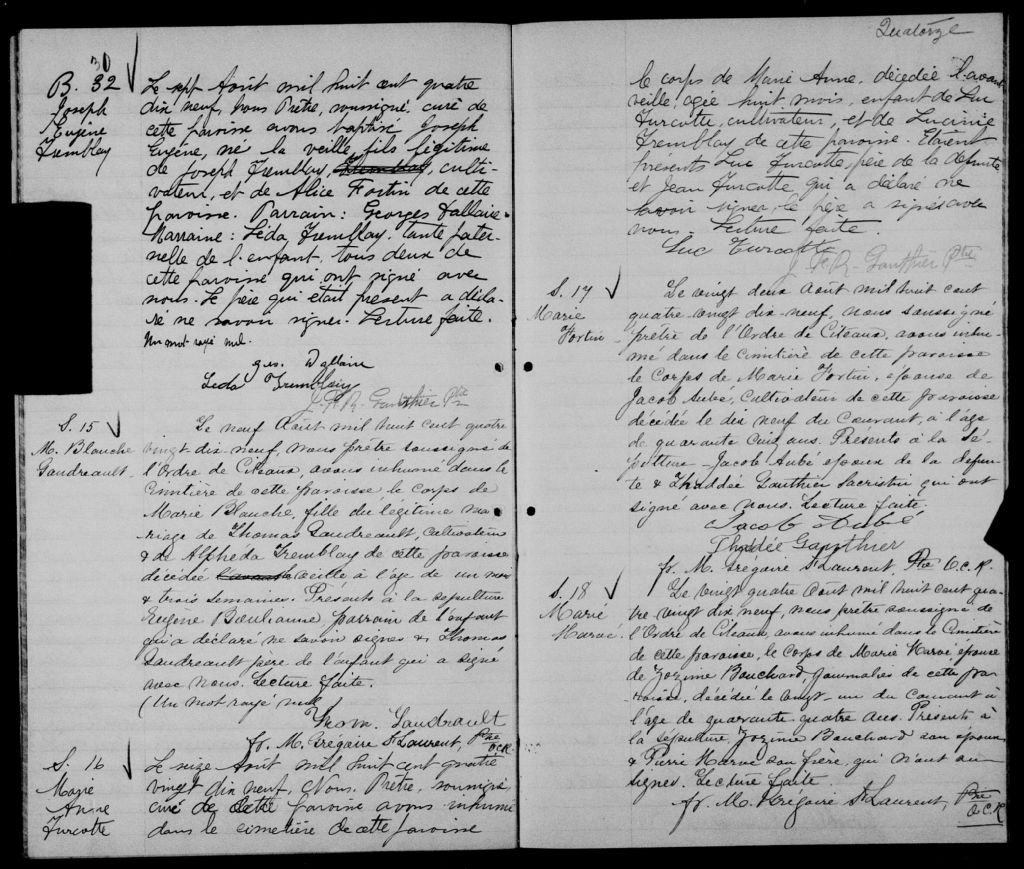 30
B. 32
Joseph
Eugène
Tremblay
Le sept Août mil huit cent quatre
dix neuf, nous Prêtre, soussigné curé de
cette paroisse avons baptisé Joseph
Eugène, né la veille, fils légitime
de Joseph Tremblay, Tremblay, culti-
vateur, et de Alice Fortin de cette
paroisse. Parrain: Georges Dallaire.
Marraine: Léda Tremblay. tante pater-
nelle de l'enfant, tous deux de
cette paroisse qui ont signé avec
nous. Le père qui était présent a décla-
ré ne savoir signer. Lecture faite.
Un mot rayé nul.
geo. Dallaire
Leda Tremblay
J. F. R. Gauthier Ptre
S. 15
M. Blanche
Gaudreault
Le neuf Août mil huit cent quatre
vingt dix neuf, nous prêtre soussigné de
l'Ordre de Citeaux, avons inhumé dans le
Cimitière de cette paroisse le corps de
Marie Blanche, fille du légitime ma
riage de Thomas Gaudreault, Cultivateur
& de Alpheda Tremblay de cette paroisse
décédée veille à l'âge de un mois
& trois semaines. Présents à la sepulture
Eugène Boulianne, parrain de l'enfant
qui a déclaré ne savoir signer & Thomas
Gaudreault père de l'enfant qui a signé
avec nous. Lecture faite.
(Un mot rayé nul
Thom. Gaudrault
fr. M. Grégaire St Laurent, Ptre
O.C.R.
S. 16
Marie
Anne
Turcotte
Le Août mil huit cent quatre
vingt dix neuf, Nous, Prêtre, soussigné
curé de cette paroisse avons inhumé
dans le cimetière de cette paroisse
Quatorze
le corps de Marie Anne, décédée l'avant
veille, agée huit mois, enfant de Luc
Turcotte, cultivateur, et de Lucinie
Tremblay de cette paroisse. Etaient
présents Luc Turcotte, père de la defunte
et Jean Turcotte qui a déclaré ne
savoir signer, le père a signé avec
nous. Lecture faite.
Luc Turcotte
J. F. R. Gauthier Ptre
S. 17
Marie
Fortin
Le vingt deux Août mil huit cent
quatre vingt dix-neuf, nous soussigné
prêtre de l'Ordre de Citeaux, avons inhu-
mé dans le Cimitière de cette paroisse
le Corps de Marie Fortin, épouse de
Jacob Aubé, Cultivateur de cette paroisse
décédée le dix neuf du Courant, à l'âge
de quarante Cinq ans. Presents à la Sé-
pulture Jacob Aubé epoux de la defun-
te & Thaddée Gauthier Sacristin qui ont
signé avec nous. Lecture faite.
Jacob Aubé
Thaddée Gauthier
fr. M. Grégaire St Laurent, Ptre O.C.R.
S. 18
Marie
Harvé
Le vingt quatre Août mil huit cent qua
tre vingt dix neuf, nous prêtre soussigné de
l'Ordre de Citeaux, avons inhumé dans le Cimitière
de cette paroisse, le Corps de Marie Harvé épouse
de Jozime Bouchard, Journalier de cette par
oisse, décédée le vingt-un du Courant à
l'âge de quarante quatre ans. Présents à
la sepulture Jozime Bouchard son époux
& Pierre Harvé son frère, qui n'ont su
signer. Lecture faite
fr. M. Grégaire St Laurent, Ptre
O.C.R